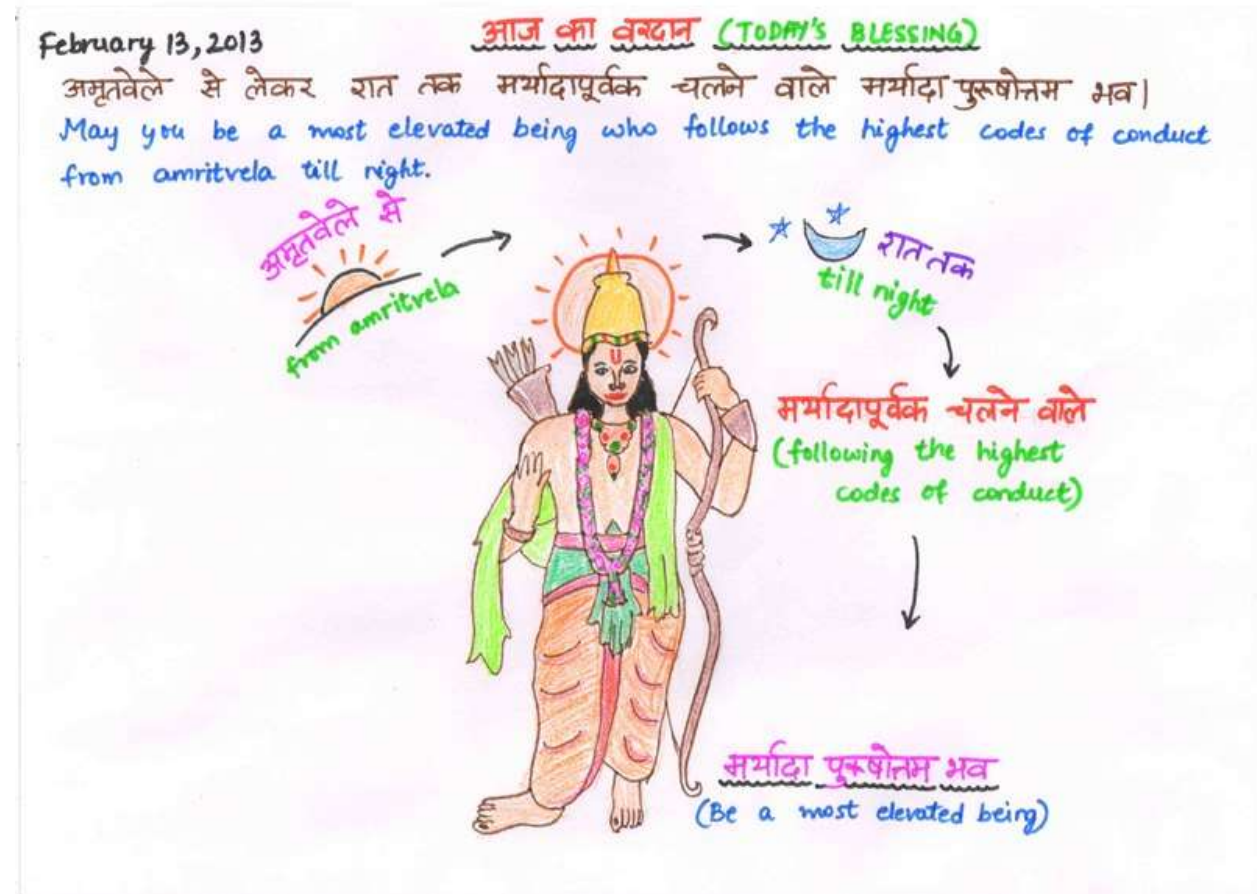 February 13, 2013
आज का वरदान (TODAY'S BLESSING)
अमृतवेले से लेकर रात तक मर्यादापूर्वक चलने वाले मर्यादा पुरूषोत्तम भव।
May you be a most elevated being who follows the highest codes of conduct
from amritvela till night.
अमृतवेले से
from amritvela
रात तक
till night
मर्यादापूर्वक चलने वाले
(following the highest
codes of conduct)
मर्यादा पुरूषोत्तम भव
(Be a most elevated being)